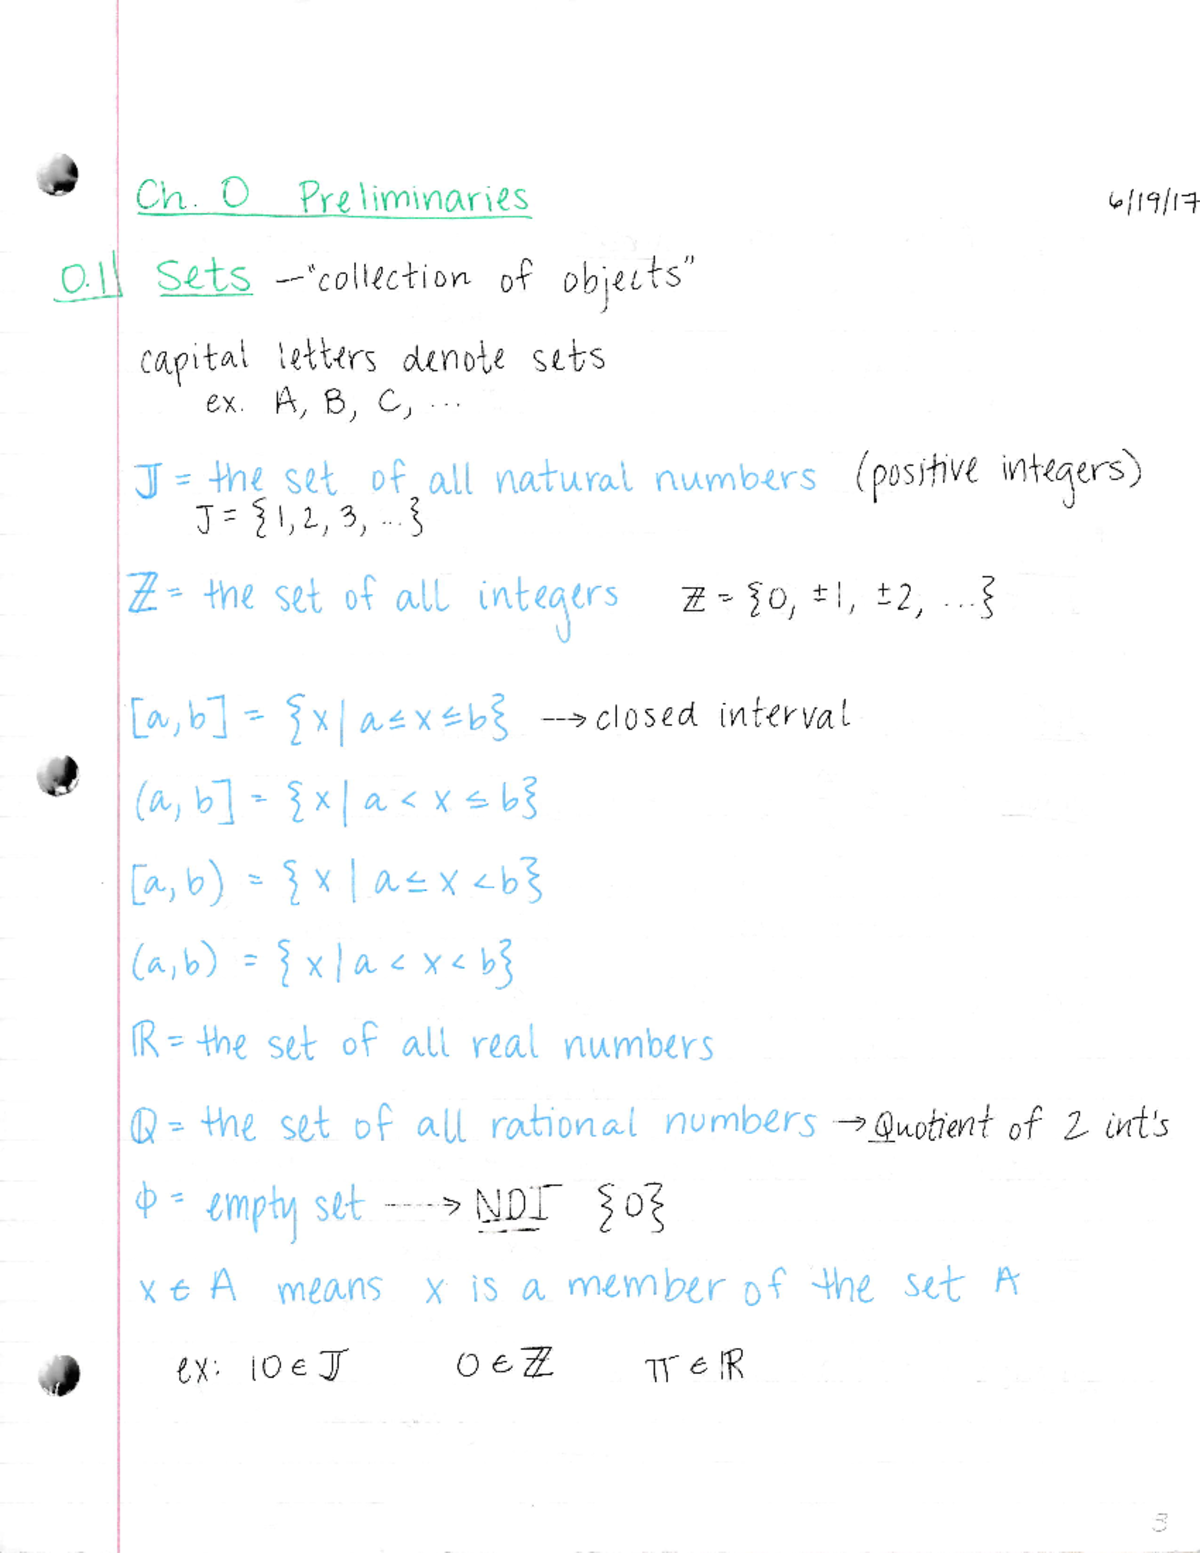 Ch. 0 Preliminaries
6/19/17
0.1 Sets —"collection of objects"
capital letters denote sets
ex. A, B, C, ...
𝕁 = the set of all natural numbers (positive integers)
J = {1, 2, 3, ...}
ℤ = the set of all integers ℤ = {0, ±1, ±2, ...}
[a, b] = {x | a ≤ x ≤ b} ---> closed interval
(a, b] = {x | a < x ≤ b}
[a, b) = {x | a ≤ x < b}
(a, b) = {x | a < x < b}
ℝ = the set of all real numbers
ℚ = the set of all rational numbers → Quotient of 2 int's
ϕ = empty set -----> NOT {0}
x ∈ A means x is a member of the set A
ex: 10 ∈ 𝕁 0 ∈ ℤ π ∈ ℝ
3